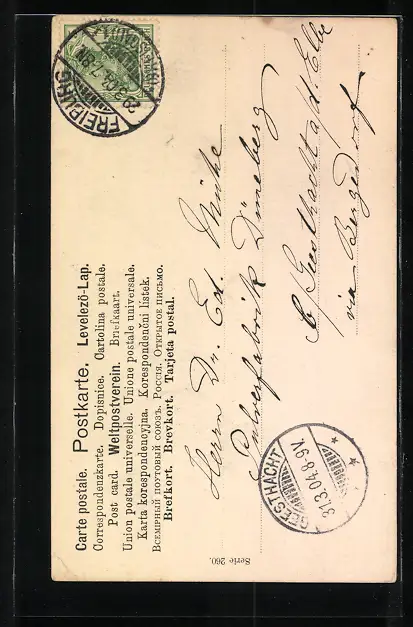 Carte postale. Postkarte. Levelező-Lap.
Correspondenzkarte. Dopisnice. Cartolina postale.
Post card. Weltpostverein. Briefkaart.
Union postale universelle. Unione postale universale.
Karta korespondencyjna. Korespondenční lístek.
Всемірный почтовый союзъ. Россія. Открытое письмо.
Brefkort. Brevkort. Tarjeta postal.
FREIBURG
28.3.04.7-8N.
Herrn Dr. Ed. Mühe
Pulverfabrik Düneberg
b/ Geesthacht a/d. Elbe
via Bergedorf
GEESTHACHT
31.3.04.8-9V.
Serie 260.